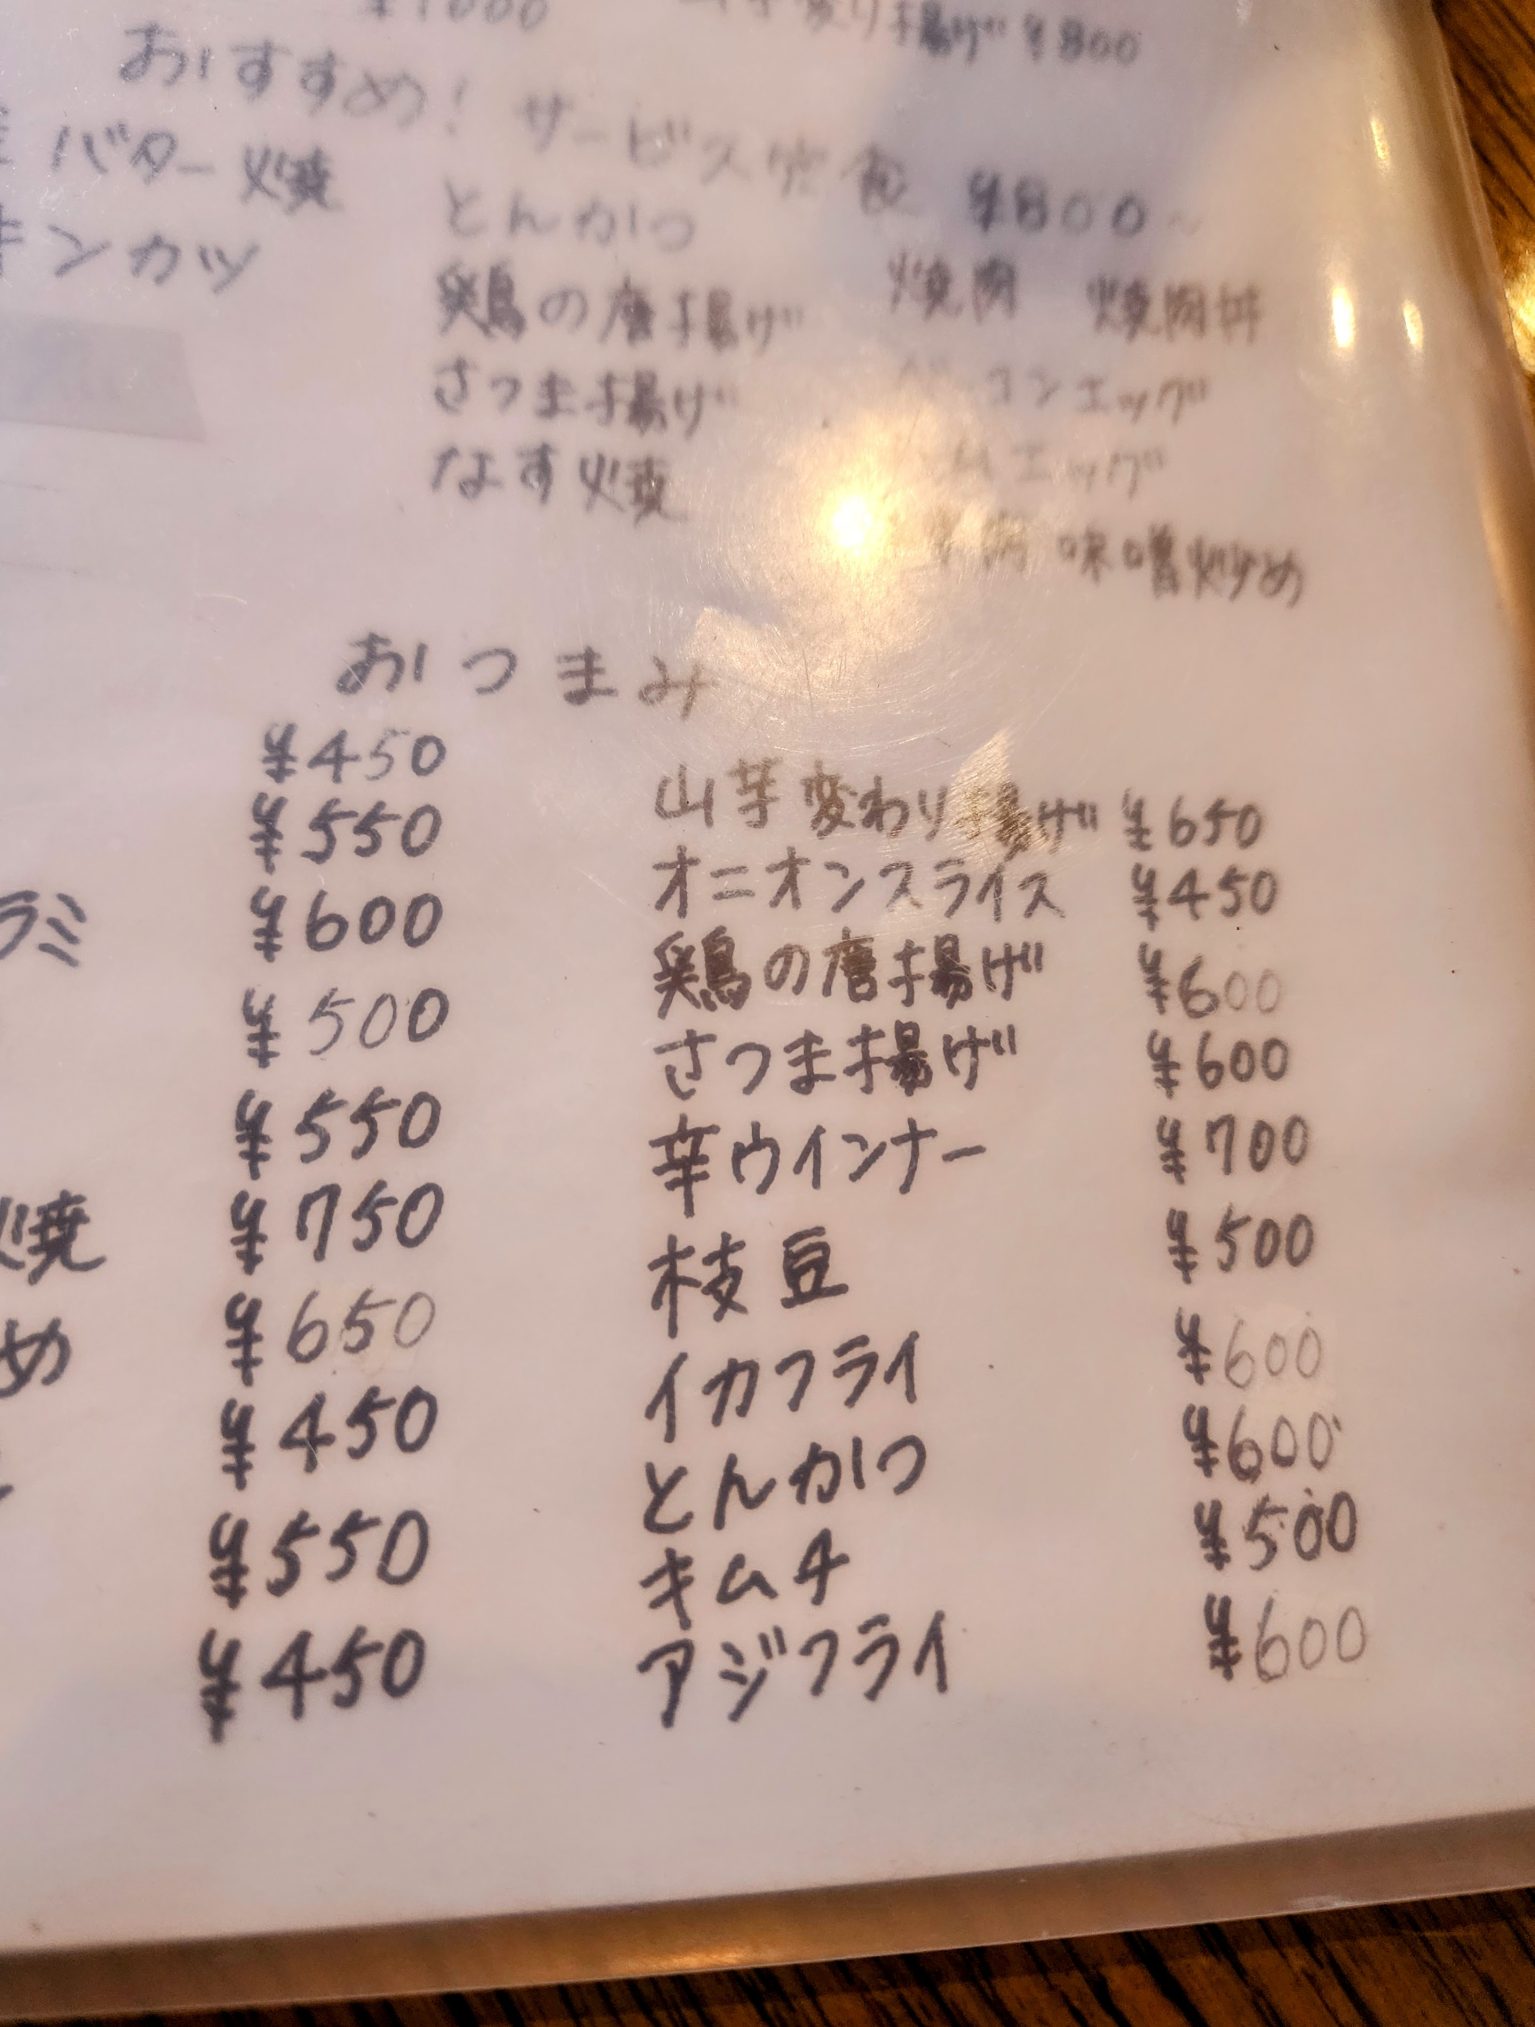 ¥1000
山芋変わり揚げ ¥800
おすすめ! サービス定食 ¥800~
バター焼
とんかつ
キンカツ
鶏の唐揚げ 焼肉 焼肉丼
さつま揚げ コンエッグ
なす焼 ムエッグ
味噌炒め
おつまみ
¥450
山芋変わり揚げ ¥650
¥550
オニオンスライス ¥450
ラミ ¥600
鶏の唐揚げ ¥600
¥500
さつま揚げ ¥600
¥550
辛ウインナー ¥700
焼 ¥750
枝豆 ¥500
め ¥650
イカフライ ¥600
¥450
とんかつ ¥600
¥550
キムチ ¥500
¥450
アジフライ ¥600